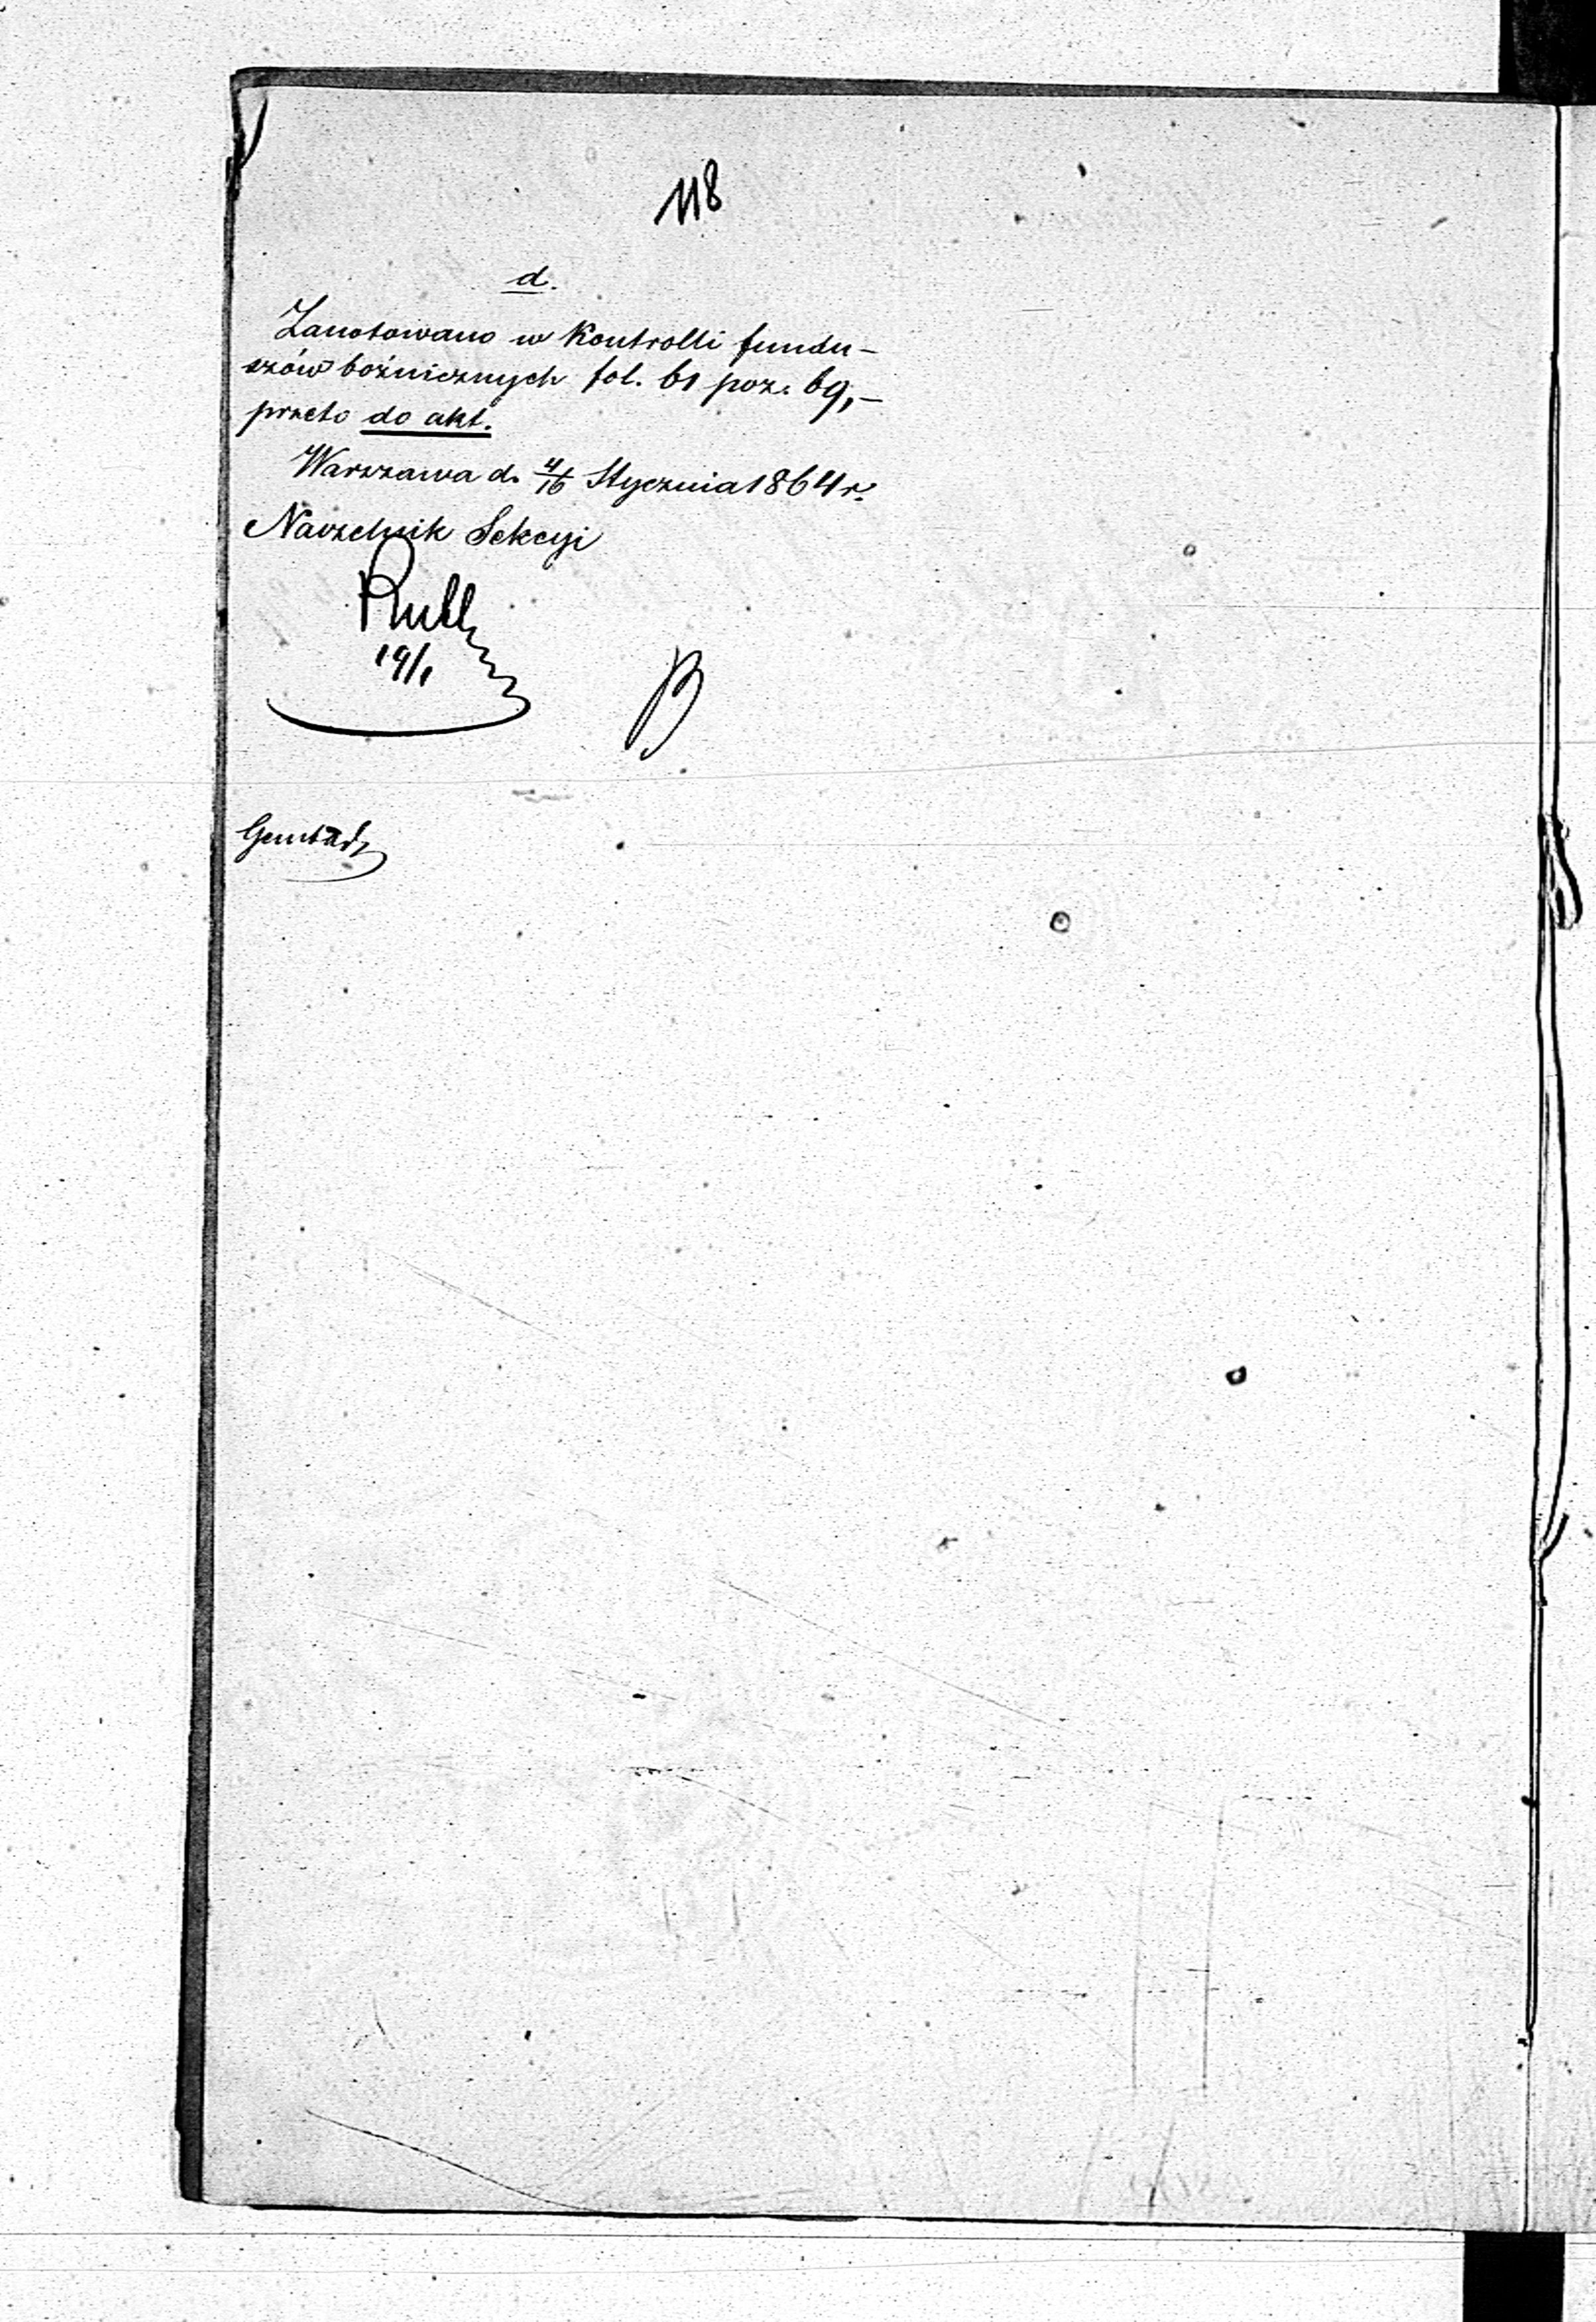 118
d.
Zanotowano w Kontrolli fundu-
szów bożnicznych fol. 61 poz. 69,-
przeto do akt.
Warszawa d. 4/16 Stycznia 1864 r.
Naczelnik Sekcyi
19/1